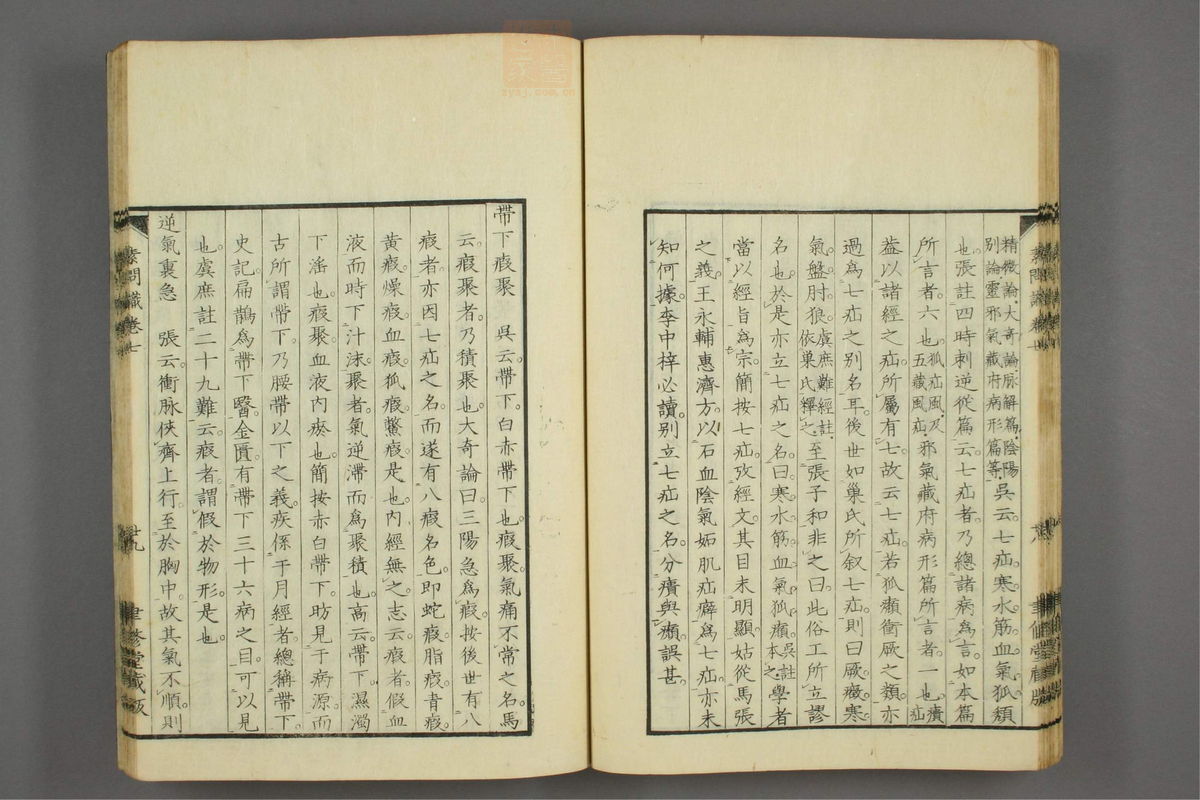 精微論、大奇論、脉解篇、陰陽
別論、靈邪氣藏府病形篇等、吳云。七疝。寒水筋血氣狐㿗
也。張註四時刺逆從篇云。七疝者乃總諸病爲言。如本篇
所言者。六也。狐疝風、及五藏風疝、邪氣藏府病形篇所言者。一也。㿉疝
葢以諸經之疝所屬有七。故云七疝。若狐㿗衝厥之類。亦
過爲七疝之別名耳。後世如巢氏所叙七疝則曰厥癥寒
氣盤胕狼。虞庶難經註、依巢氏釋之、至張子和非之曰。此俗工所立謬
名也。於是亦立七疝之名。曰寒水筋血氣狐㿗。吳註本之、學者
當以經旨爲宗。簡按七疝攷經文其目未明顯。姑從馬張
之義。王永輔惠濟方。以石血陰氣妬肌疝癖爲七疝。亦未
知何據。李中梓必讀。別立七疝之名。分㿉與㿗。誤甚。
帶下瘕聚 吳云。帶下。白赤帶下也。瘕聚。氣痛不常之名。馬
云。瘕聚者。乃積聚也。大奇論曰。三陽急爲瘕。按後世有八
瘕者。亦因七疝之名。而遂有八瘕名色。卽蛇瘕脂瘕青瘕
黃瘕燥瘕血瘕狐瘕鱉瘕是也。內經無之。志云。瘕者。假血
液而時下汁沫。聚者。氣逆滯而爲聚積也。高云。帶下。濕濁
下淫也。瘕聚。血液內瘀也。簡按赤白帶下。昉見于病源。而
古所謂帶下。乃腰帶以下之義。疾係于月經者。總稱帶下。
史記扁鵲爲帶下醫。金匱有帶下三十六病之目。可以見
也。虞庶註二十九難云。瘕者。謂假於物形。是也。
逆氣裏急 張云。衝脉俠齊上行。至於胸中。故其氣不順。則
素問識卷七
十九
聿修堂藏版